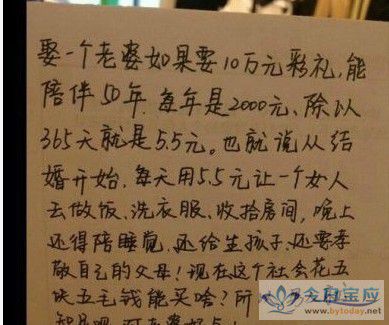 娶一个老婆如果要10万元彩礼,能
陪伴50年.每年是2000元、除以
365天就是5.5元。也就说从结
婚开始.每天用5.5元让一个女人
去做饭、洗衣服、收拾房间,晚上
还得陪睡觉.还给生孩子、还要孝
敬自己的父母!现在这个社会花五
块五毛钱能买啥?所
今日宝应
www.bytoday.net